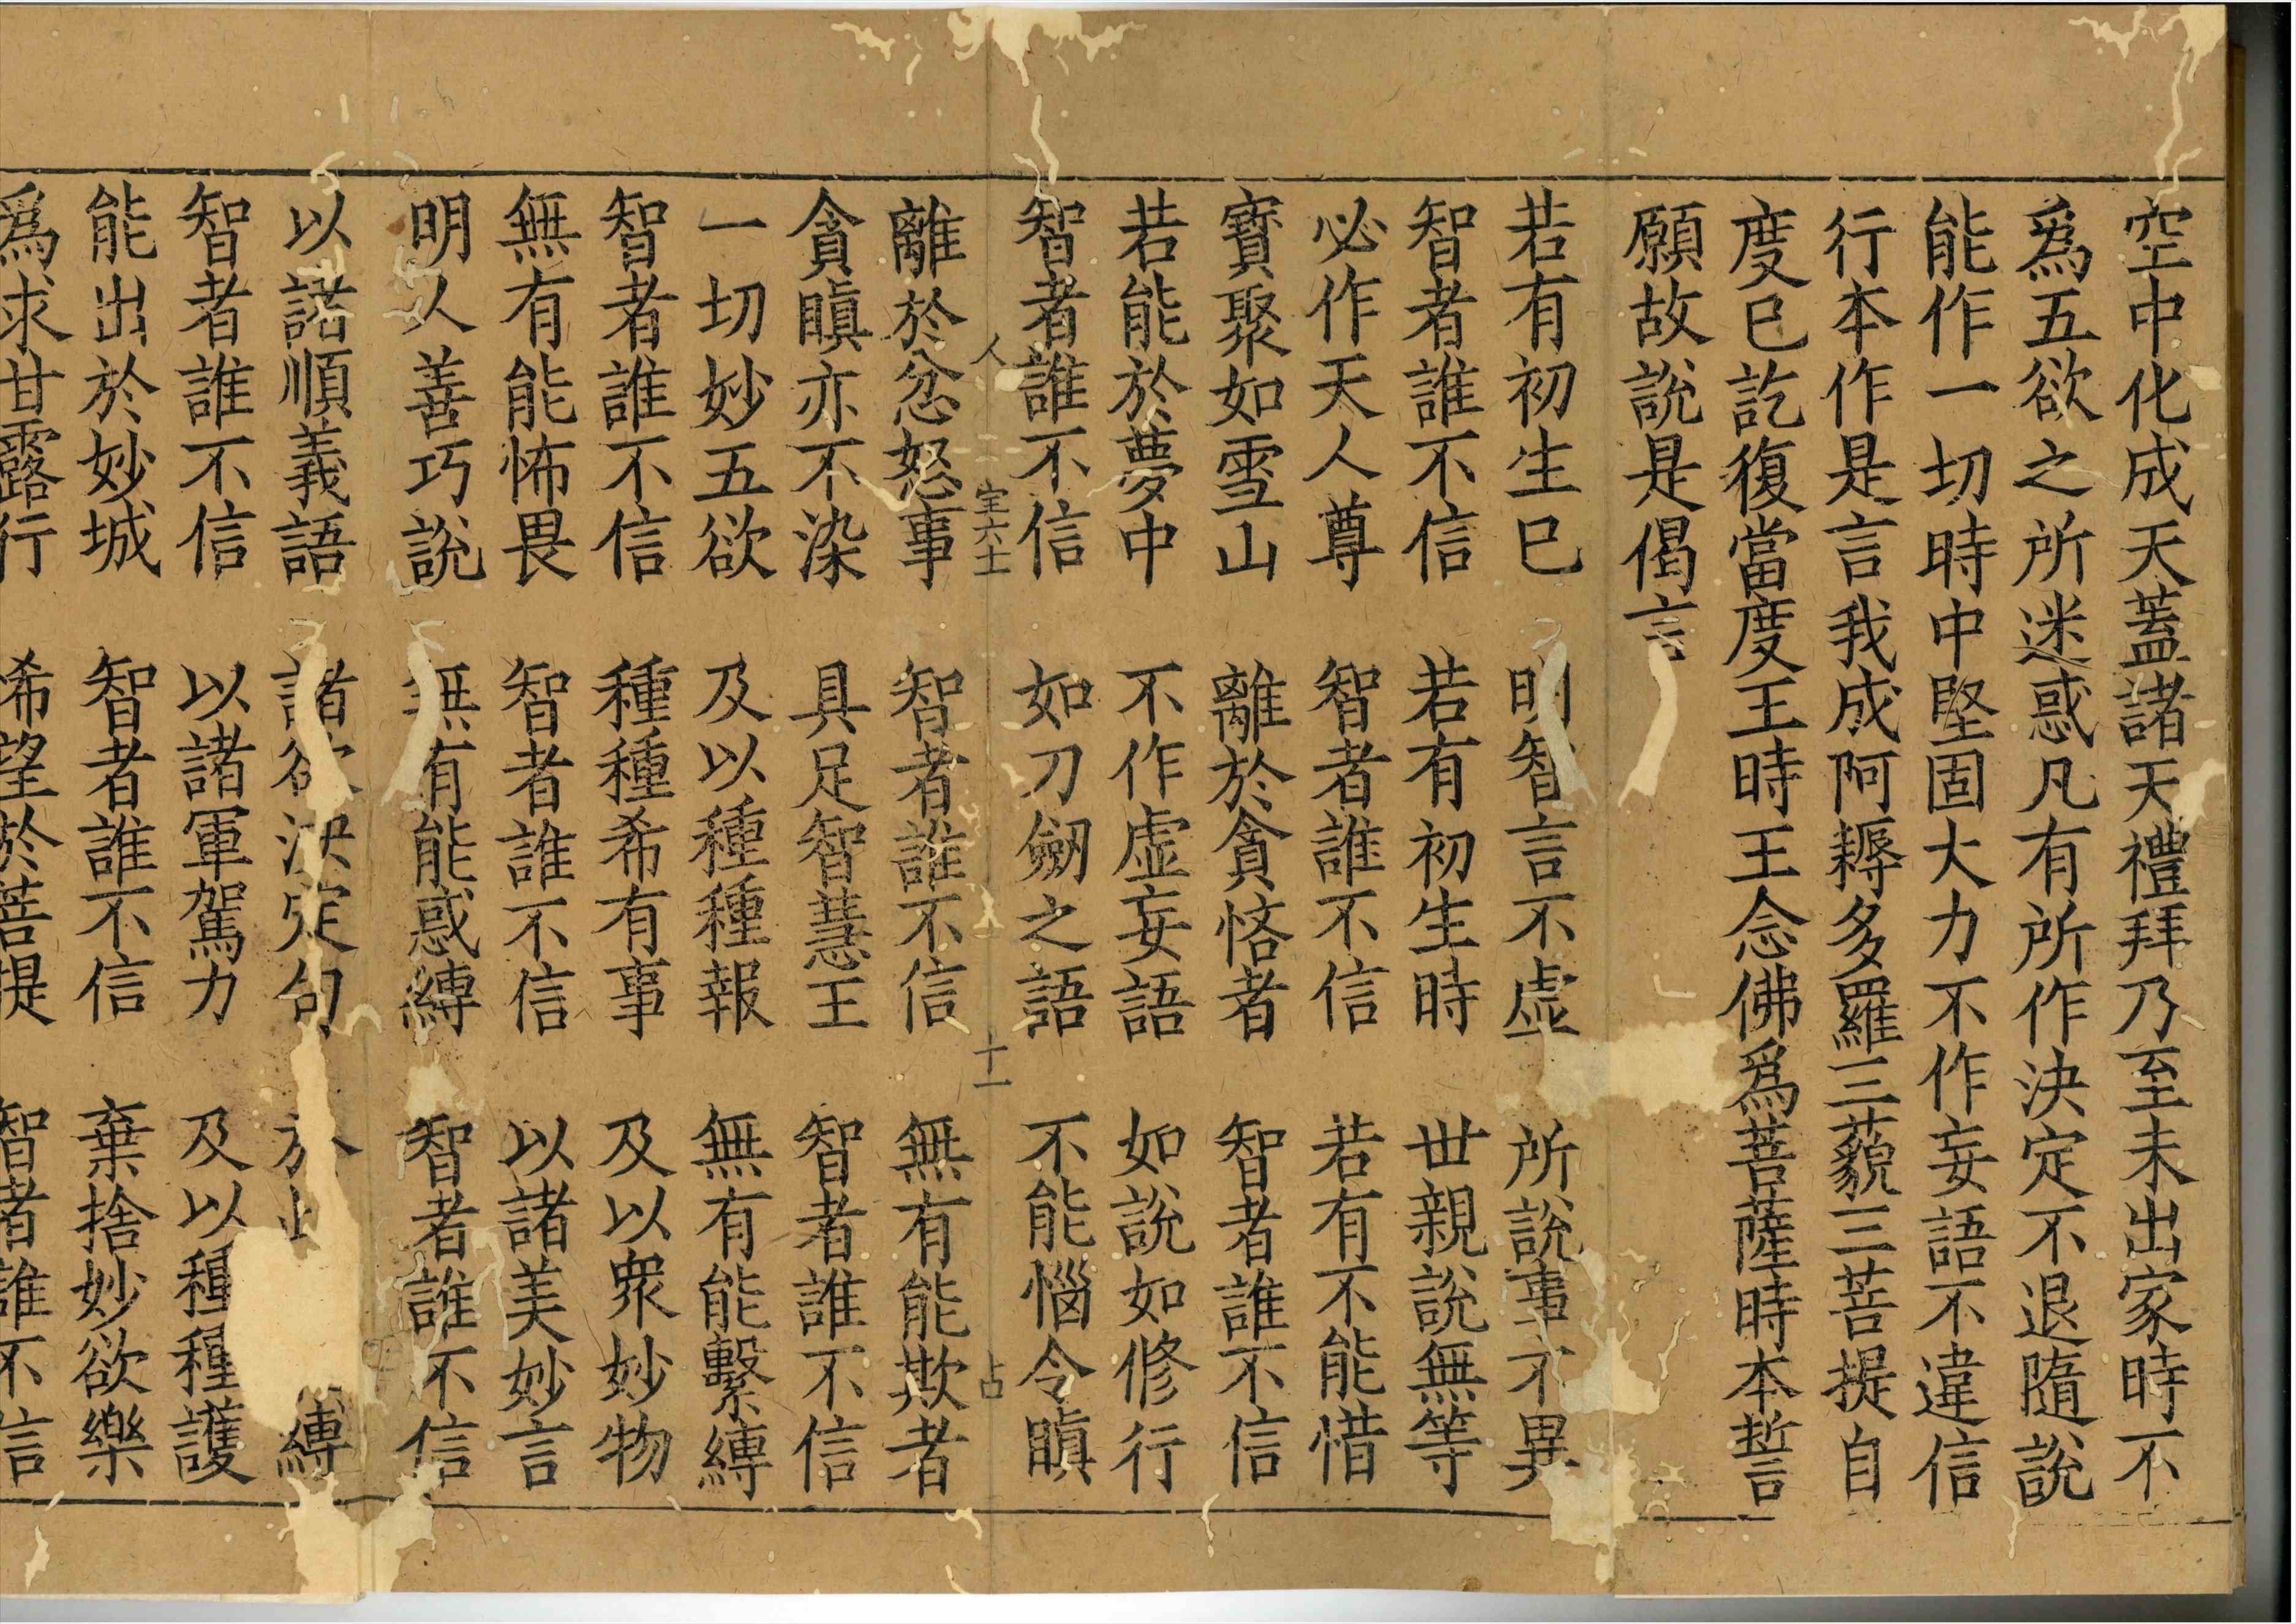 空中化成天蓋諸天禮拜乃至未出家時不
爲五欲之所迷惑凡有所作決定不退隨說
能作一切時中堅固大力不作妄語不違信
行本作是言我成阿耨多羅三藐三菩提自
度已訖復當度王時王念佛爲菩薩時本誓
願故說是偈言
若有初生已 明智言不虛 所說事不異
智者誰不信 若有初生時 世親說無等
必作天人尊 智者誰不信 若有不能惜
寶聚如雪山 離於貪悋者 智者誰不信
若能於夢中 不作虛妄語 如說如修行
智者誰不信 如刀劒之語 不能惱令瞋
人 二 室六士 十一 占
離於忿怒事 智者誰不信 無有能欺者
貪瞋亦不染 具足智慧王 智者誰不信
一切妙五欲 及以種種報 無有能繫縛
智者誰不信 種種希有事 及以衆妙物
無有能怖畏 智者誰不信 以諸美妙言
明人善巧說 無有能惑縛 智者誰不信
以諸順義語 諸欲決定句 於 縛
智者誰不信 以諸軍駕力 及以種種護
能出於妙城 智者誰不信 棄捨妙欲樂
爲求甘露行 希望於菩提 智者誰不信